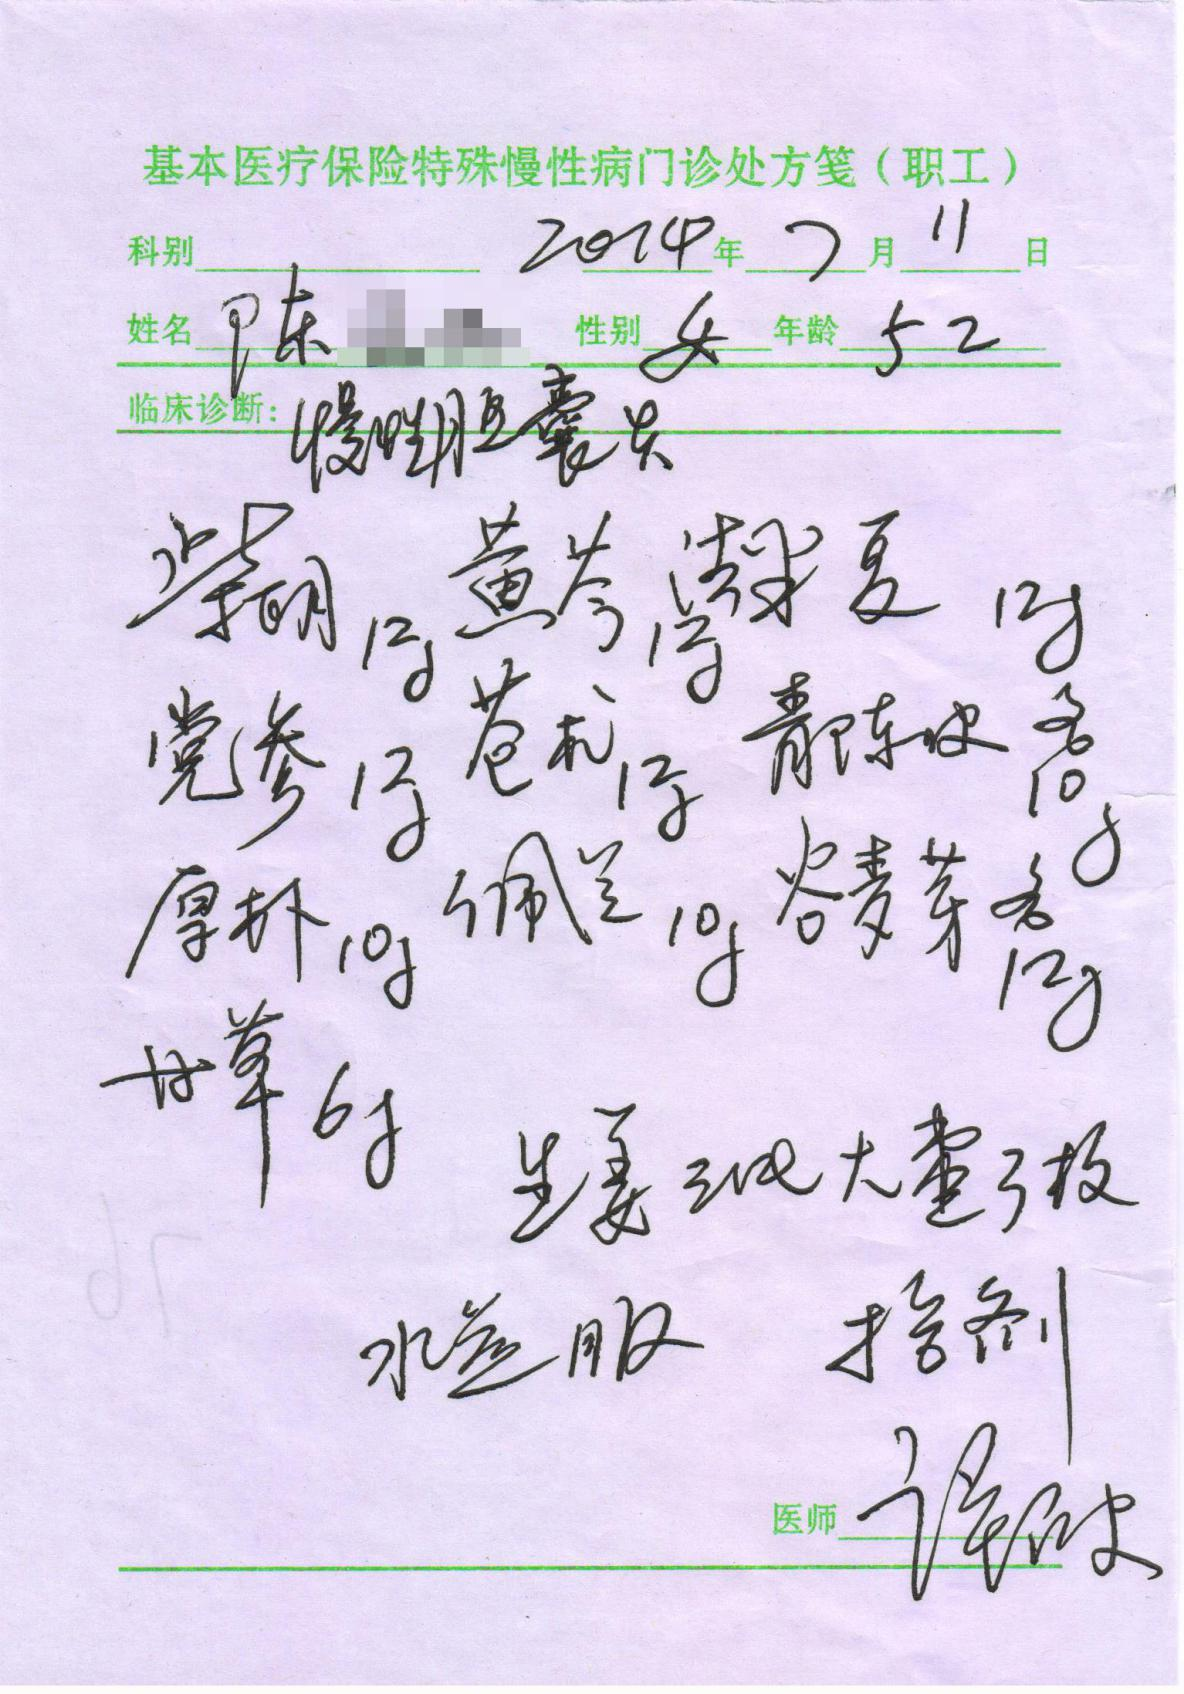 基本医疗保险特殊慢性病门诊处方笺（职工）
科别 2014年7月11日
姓名 陈 性别 女 年龄 52
临床诊断：慢性胆囊炎
柴胡12g 黄芩12g 法半夏12g
党参12g 苍术12g 青陈皮各10g
厚朴10g 佩兰10g 谷麦芽各12g
甘草6g
生姜三片 大枣3枚
水煎服 拾剂
医师